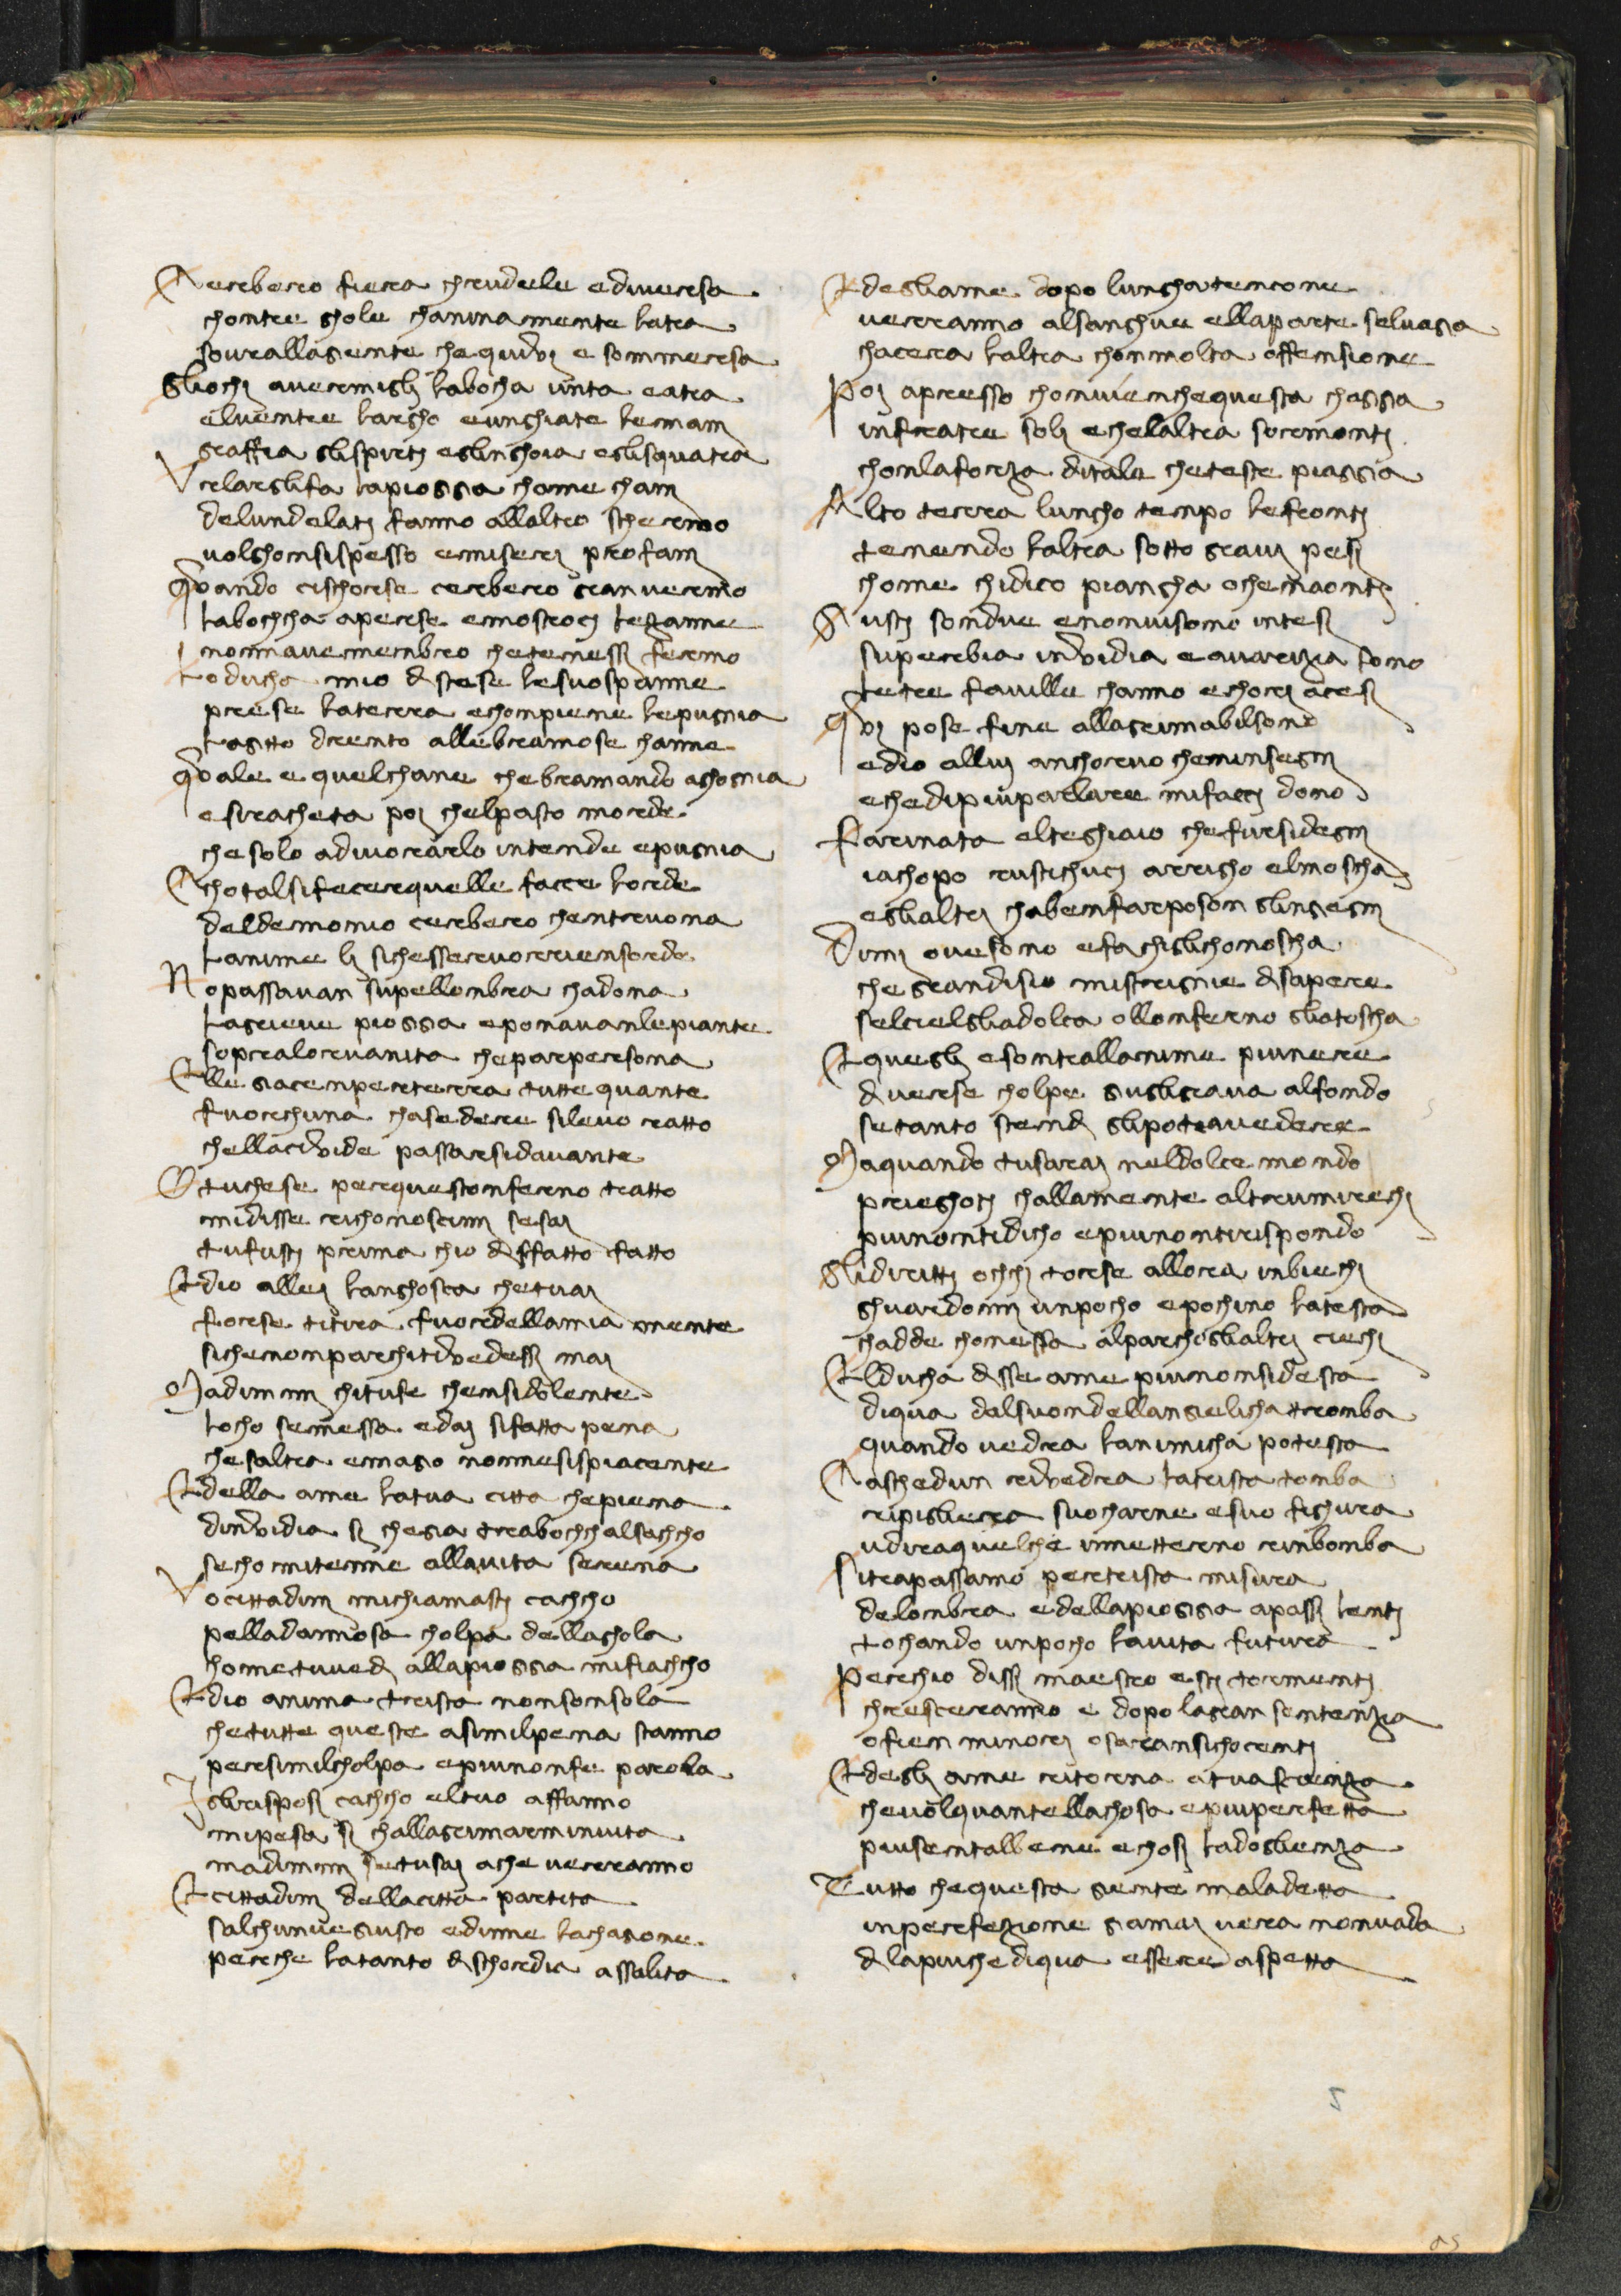 Cerebero fiera chrudele e diversa
chontre ghole chaninamente latra
sovrallagente che quivi e sommersa
Gliochi a vermigli labocha unta eatra
elventre largho eunghiate lemani
graffia glispiriti eglinghoia eglisquatra
Vrlareglifa lapioggia chome chani
delundelati fanno allaltro schermo
volghonsispesso emiseri profani
Quando cischorse cerebero granvermo
labochcha aperse emostroci lezanne
nonnavemembro chetenessi fermo
Loducha mio distese lesuospanne
prese laterra echonpiene lepugnia
lagitto drento allebramose channe
Quale e quelchane chebramando aghognia
esiracheta poi chelpasto morde
che solo adivorarlo intende epugnia
Chotalsifecerquelle facce lorde
deldemonio cerebero chentruona
lanime li sichesservorriensorde
Nopassavan supellonbra chadona
lagrieve pioggia eponavanlepiante
sopralorvanita chepar persona
Elle giacenperterra tutte quante
fuorchuna chasedere silevo ratto
chellacivide passarsidavante
O tuchese perquestonferno tratto
midisse richonoscimi sesai
tufusti prima chio disffatto fatto
Edio allei langhoscia chetuai
forse titira fuordellamia mente
sichenonparchitivedessi mai
Madimmi chituse chensidolente
locho semessa edai sifatta pena
chesaltra emagio nonnesispiacente
Edella ame latua citta chepiena
dinvidia si chegia trabochchalsachcho
secho mitenne allavita serena
Vo cittadini michiamasti cachcho
pelladannosa cholpa dellaghola
chometuvedi allapioggia mifiachcho
Edio anima trista nonsonsola
chetutte queste asimilpena stanno
persimilcholpa epiunonfe parola
Iglirisposi cachcho eltuo affanno
mipesa si challagrimarminvita
madimmi setusai ache verranno
E cittadini dellacitta partita
salchunvegiusto edimme lachagione
perche latanto dischordia assalita
Edegliame dopo lunghatencione
verranno alsanghue ellaparte selvagia
chacera laltra chonmolta offensione
Poi apresso chonvienchequesta chaggia
infratre soli echelaltra sormonti
chonlaforza ditale cheteste piaggia
Alto terra lungho tempo lefronti
tenendo laltra sotto gravi pesi
chome chidico piangha ochenaonti
Giusti sondue enonvisono intesi
superbia invidia eavarizia sono
letre faville channo echori acesi
Qui pose fine allagrimabilsono
edio allui anchorvo cheminsegni
echedipiuparlare mifacci dono
Farinata elteghiaio chefursidegni
iachopo rustichuci arrigho elmoscha
eglialtri chabenfarposon glingegni
Dimi ovesono efachiglichonoscha
che grandisio mistrignie disapere
selcielgliadolca ollonferno gliatoscha
Equegli esontrallanime piunere
diverse cholpe giugligrava alfondo
setanto scendi glipotravedere
Maquando tusarai neldolce mondo
prieghoti challamente altruimirechi
piunontidicho epiunontirispondo
Glidiritti ochchi torse allora inbiechi
ghuardommi unpocho epochino latesta
chadde chonessa alparchoglialtri ciechi
Elducha disse ame piunonsidesta
diqua dalsuondellangielicha tromba
quando vedra lanimicha potesta
Ciaschedun rivedra latrista tomba
ripigliera suocharne esuo fighura
udiraquelche innetterno rinbomba
Sitrapassamo pertrista misura
delombra edellapioggia apassi lenti
tochando unpocho lavita futura
Perchio dissi maestro esti tormenti
chresceranno e dopo lagran sentenzia
ofien minori osaransichocenti
Edegli ame ritorna atuascienza
chevolquantellachosa epiuperfetta
piusentalbene echosi ladoglienza
Tutto chequesta giente maladetta
inperfezione giamai vera nonvada
dilapiuchediqua essere aspetta
5